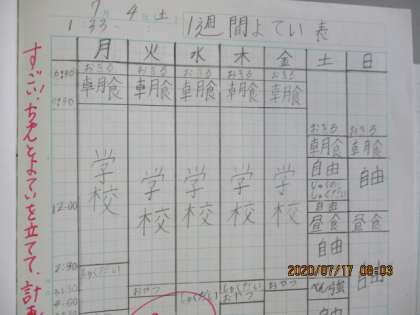 7 4 土
1:33 1週間よてい表
月 火 水 木 金 土 日
おきる おきる おきる おきる おきる
朝食 朝食 朝食 朝食 朝食
おきる おきる
朝食 朝食
学校 学校 学校 学校 学校 自由 自由
12:00 自由
昼食 昼食
自由 自由
しゅくだい
おやつ しゅくだい しゅくだい おやつ
おやつ
自由
すごい、ちゃんとよていを立てて、計
2020/07/17 08:03